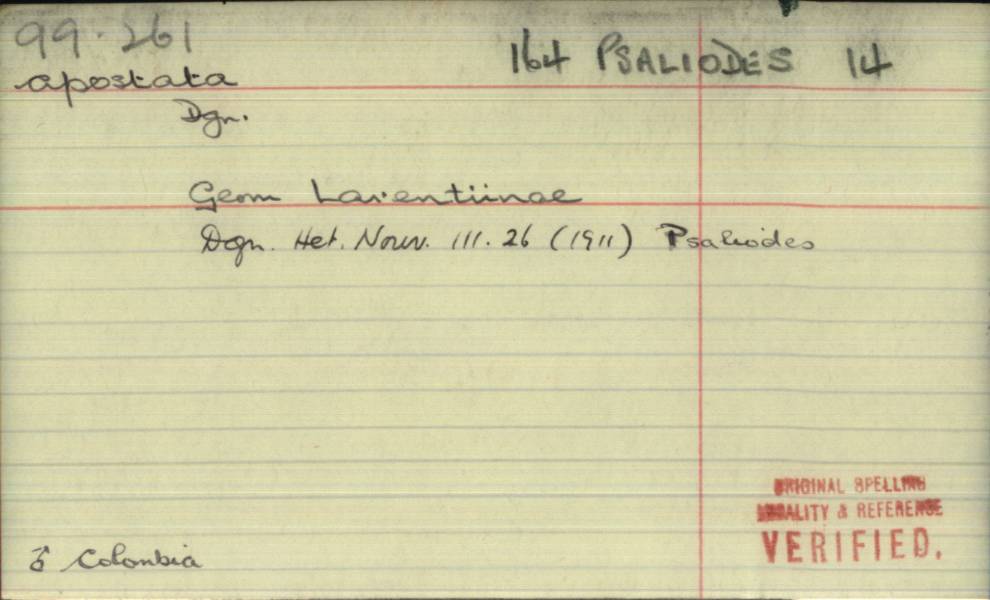 99.261
164 PSALIODES 14
apostata
Dgn.
Geom Larentiinae
Dgn. Het. Nouv. III. 26 (1911) Psaliodes
ORIGINAL SPELLING
LOCALITY & REFERENCE
VERIFIED.
♂ Colombia